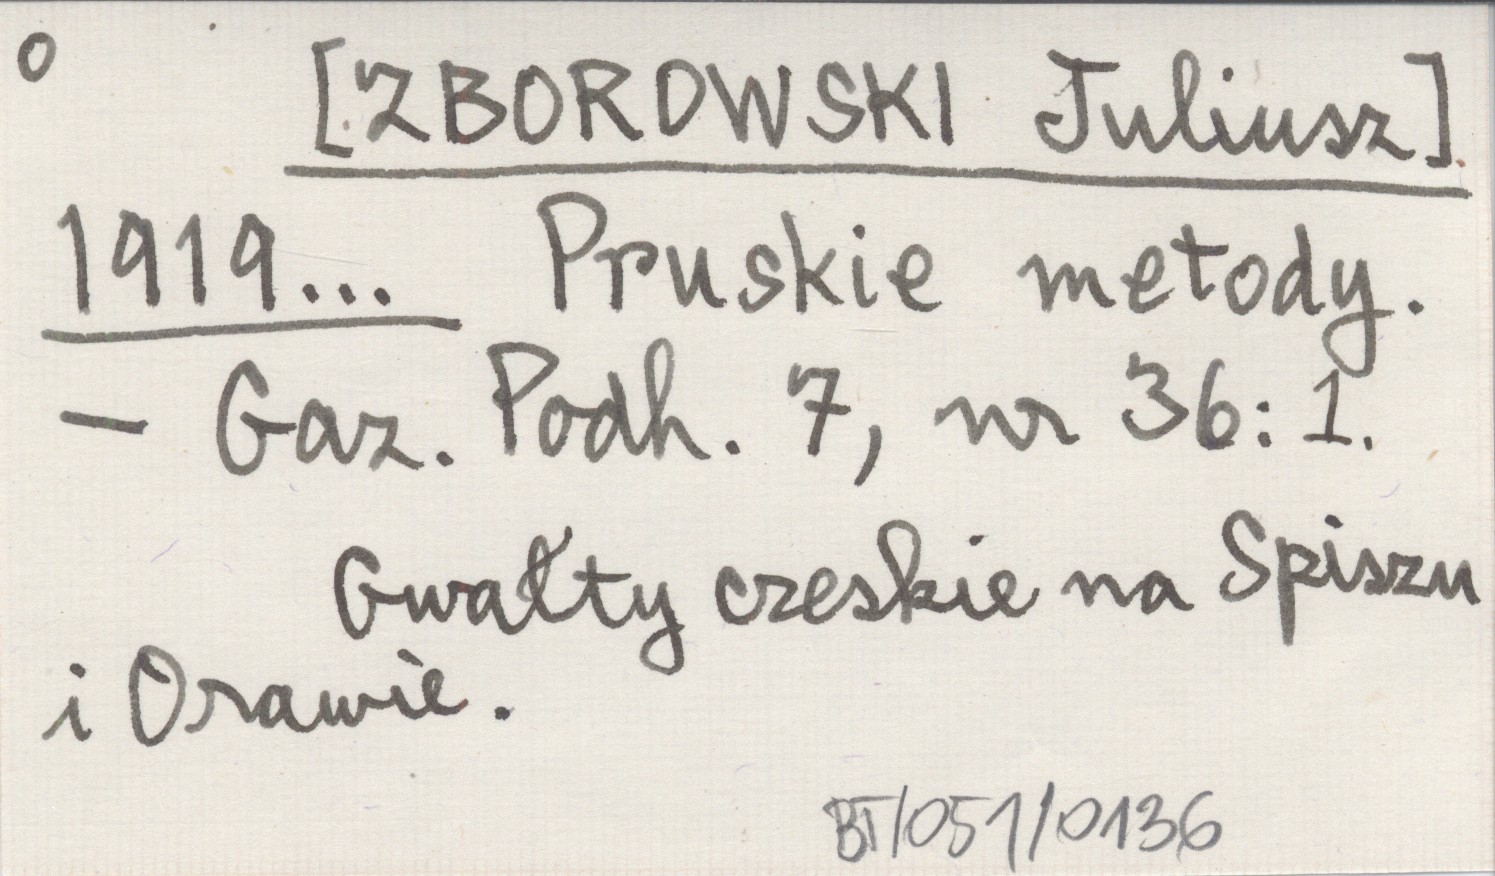 o [ZBOROWSKI Juliusz]
1919... Pruskie metody.
— Gaz. Podh. 7, nr 36: 1.
Gwałty czeskie na Spiszu
i Orawie.
BT/051/0136